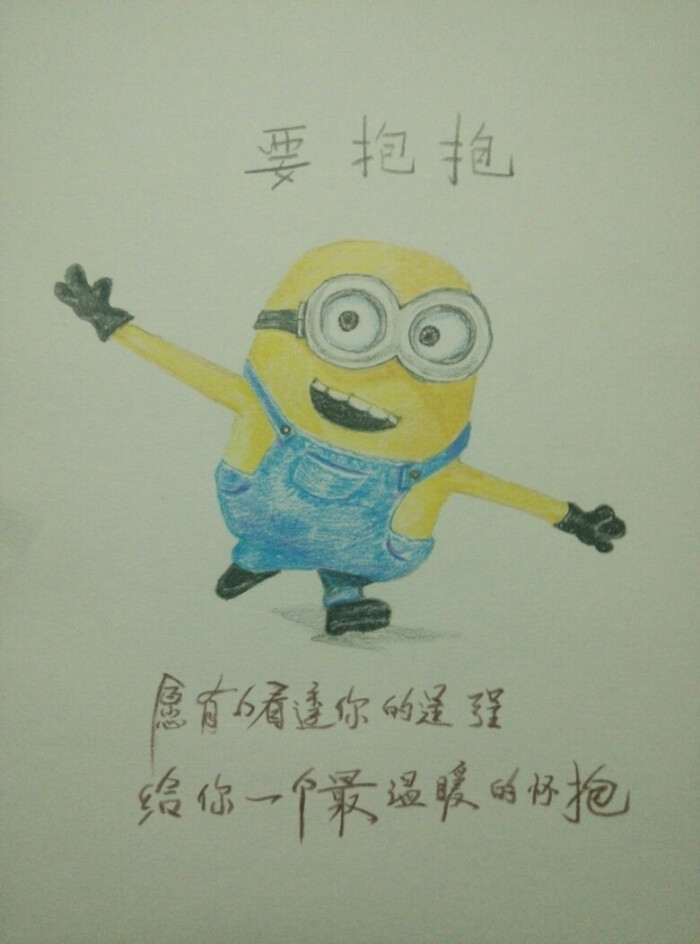 要抱抱
愿有人看透你的逞强
给你一个最温暖的怀抱